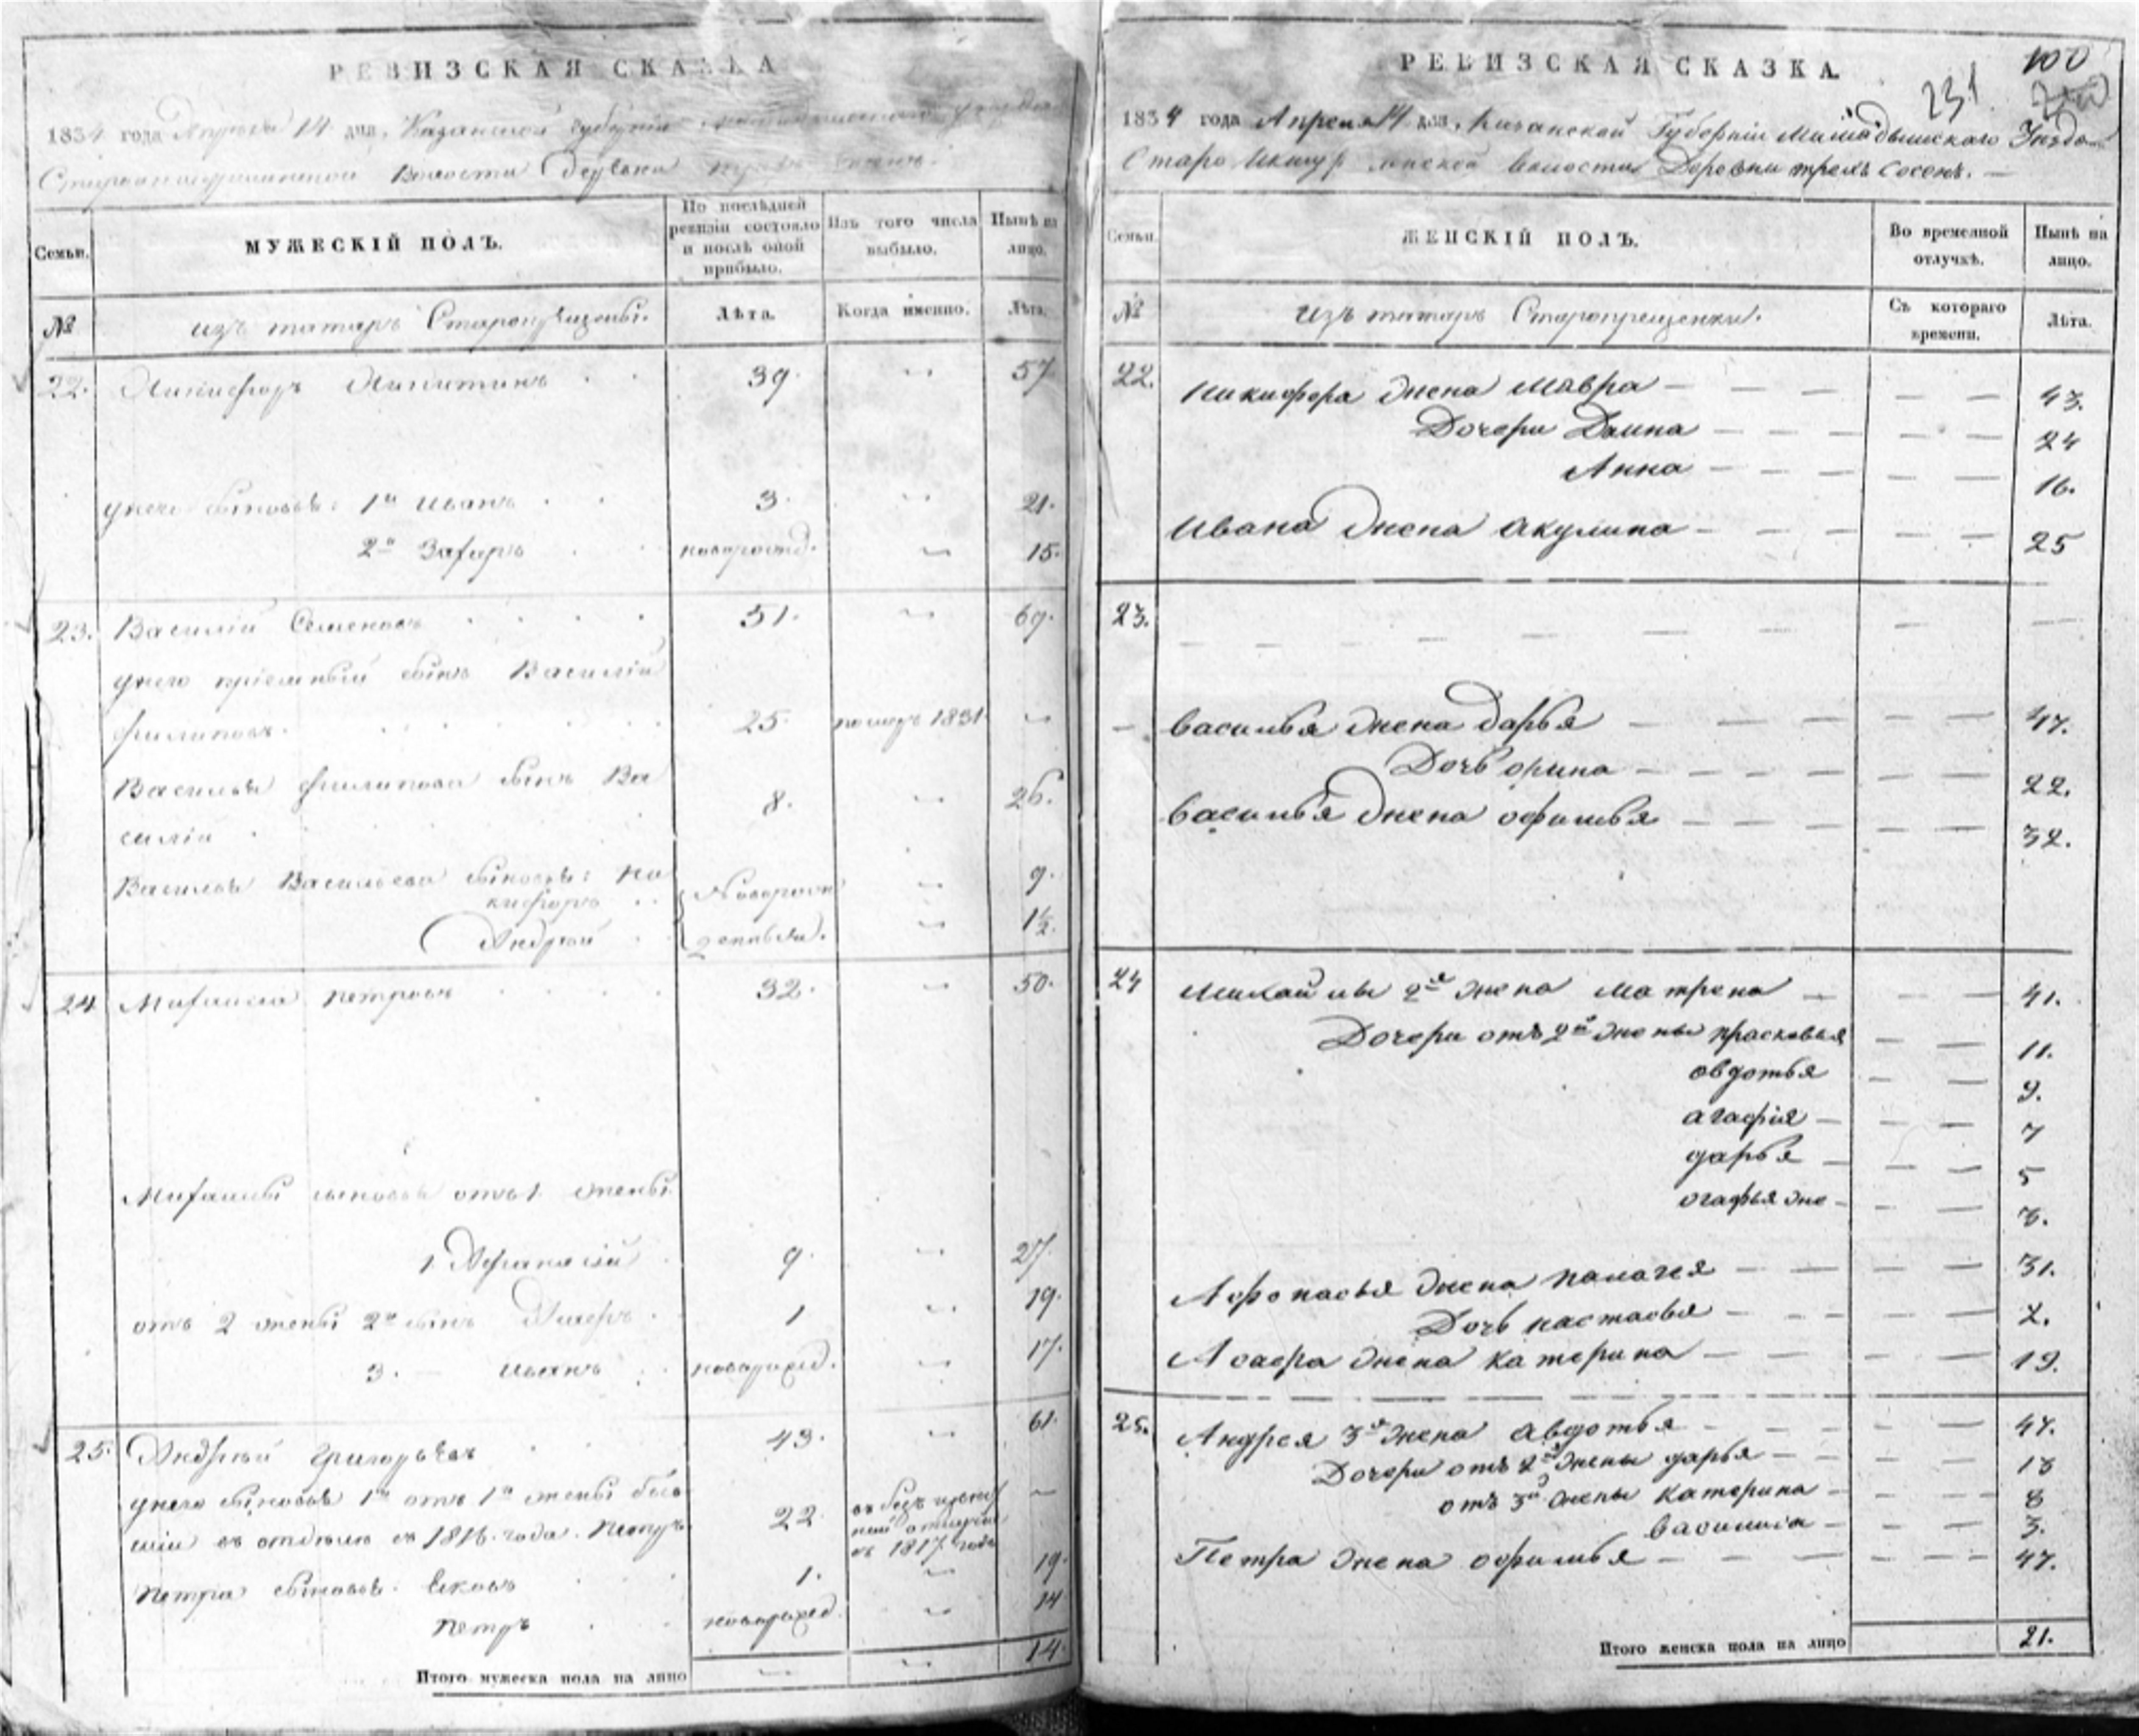 РЕВИЗСКАЯ СКАЗКА
1834 года Апреля 14 дня, Казанской Губернiи
волости деревни
Семьи.
МУЖЕСКIЙ ПОЛЪ.
По послѣдней ревизiи состояло и послѣ оной прибыло.
Изъ того числа выбыло.
Нынѣ на лицо.
№
изъ татаръ Старокрещены.
Лѣта.
Когда именно.
Лѣта.
22. Никифоръ Никитинъ 39. 57
у него сыновья: 1й Иванъ 3. 21.
2й новорожд. 15.
23. Василiй Семеновъ 51. 69.
у него прiемный сынъ Василiй
Филиповъ. 25. померъ 1831
Василья Филипова сынъ Ва 8. 26.
силiй
Василья Васильева сыновья: Ни 9.
кифоръ
Андрей 1½.
24 Михайла Петровъ 32. 50.
Михайлы сыновья отъ 1 жены
1 Афанасiй 9. 27.
отъ 2 жены 2й сынъ 1 19.
3. — Иванъ новорожд. 17.
25. Андрей Григорьевъ 43. 61.
у него сыновья 1й отъ 1й жены быв
шiй въ отдѣле съ 1816. года. Петръ 22
въ 1817 году
Петра сыновья: Яковъ 1. 19.
Петръ новорожд. 14
Итого мужеска пола на лицо 14.
РЕВИЗСКАЯ СКАЗКА.
100
231
1834 года Апреля 14 дня, Казанской Губернiи Мамадышскаго Уезда
Старо волости Деревни трехъ сосенъ. —
Семьи.
ЖЕНСКIЙ ПОЛЪ.
Во временной отлучкѣ.
Нынѣ на лицо.
№
Изъ татаръ Старокрещенки.
Съ котораго времени.
Лѣта.
22. Никифора жена Мавра — 43.
Дочери Домна — 24
Анна — 16.
Ивана жена Акулина — 25
23.
Василья жена Дарья — 47.
Дочь орина — 22.
Василья жена офимья — 32.
24 Михайлы 2я жена Матрена — 41.
Дочери отъ 2й жены прасковья 11.
овдотья 9.
агафiя — 7
дарья — 5
3.
Афонасья жена палагея — 31.
Дочь настасья — 2.
жена катерина — 19.
25. Андрея 3я жена авдотья — 47.
Дочери отъ 2й жены дарья — 18
отъ 3й жены катерина — 8
василиса — 3.
Петра жена офимья — 47.
Итого женска пола на лицо 21.